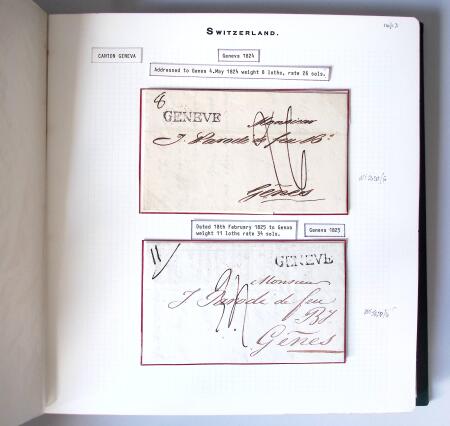 SWITZERLAND.
CANTON GENEVA
Geneva 1824
Addressed to Genoa 4.May 1824 weight 8 loths, rate 26 sols.
8
GENEVE
Monsieur
J. Parodi de feu B.
Gênes
Dated 18th February 1825 to Genoa
weight 11 loths rate 34 sols.
Geneva 1825
11
GENEVE
Monsieur
J Parodi de feu
BJ
Gênes